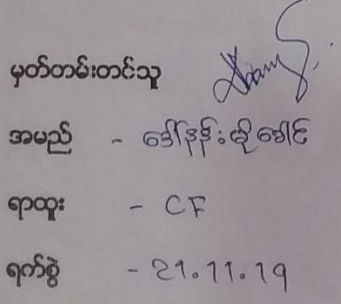 မှတ်တမ်းတင်သူ
အမည် - ဒေါ်နန်းမို့ခေါင်
ရာထူး - CF
ရက်စွဲ - 21.11.19